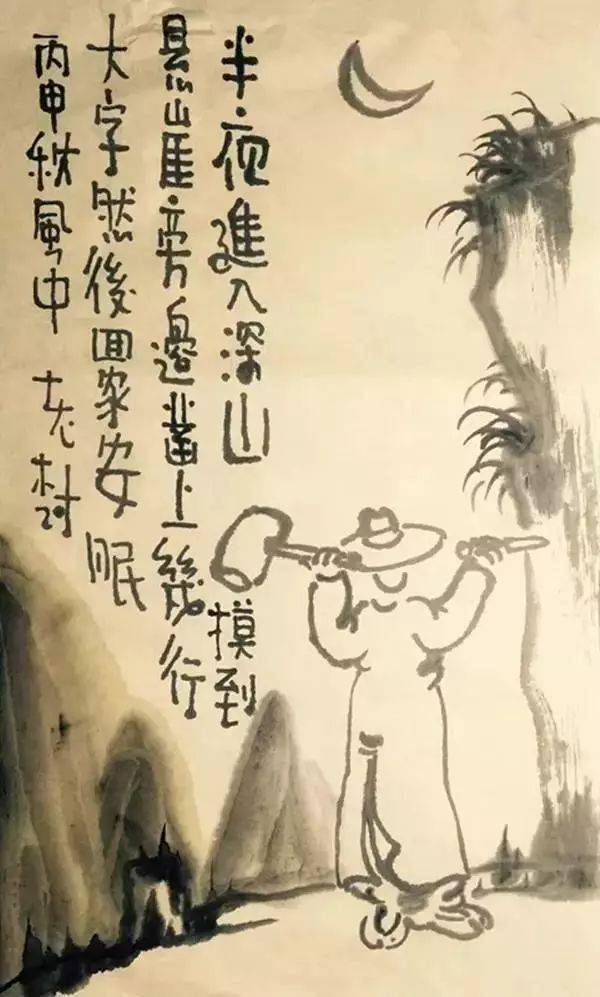 半夜進入深山 摸到
悬崖旁邊凿上幾行
大字然後回家安眠
丙申秋風中 老树